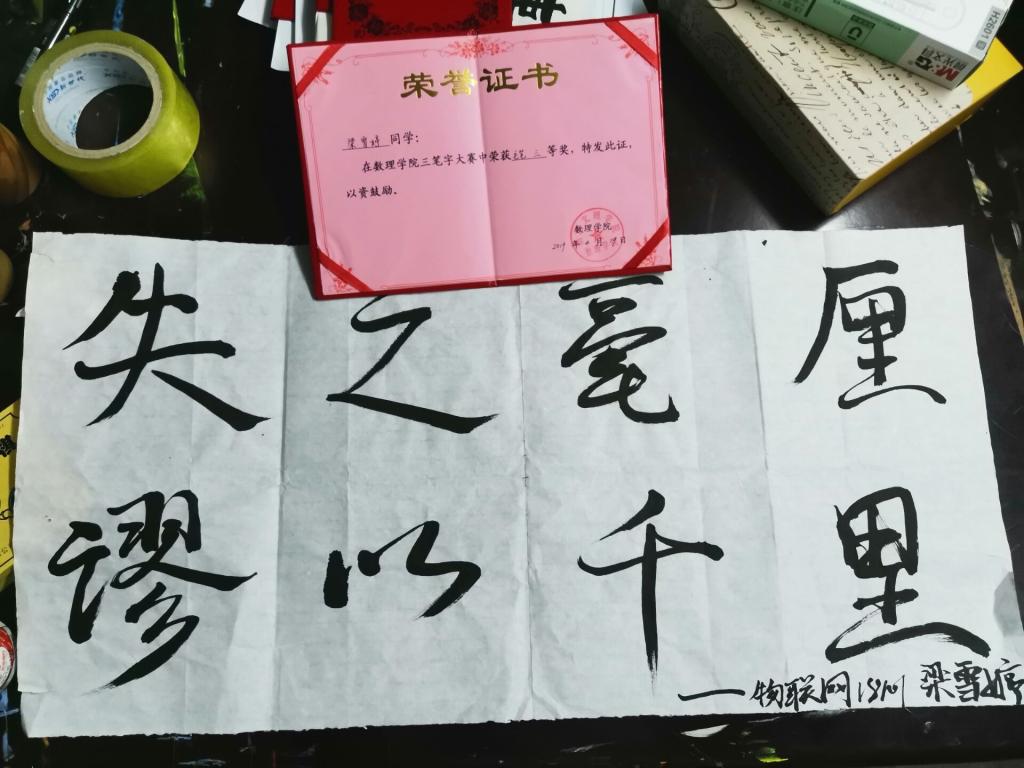 荣誉证书
梁雪婷 同学:
在数理学院三笔字大赛中荣获 三等奖，特发此证，
以资鼓励。
数理学院
2019年 月 日
失之毫厘
谬以千里
一物联网1801 梁雪婷
M&G